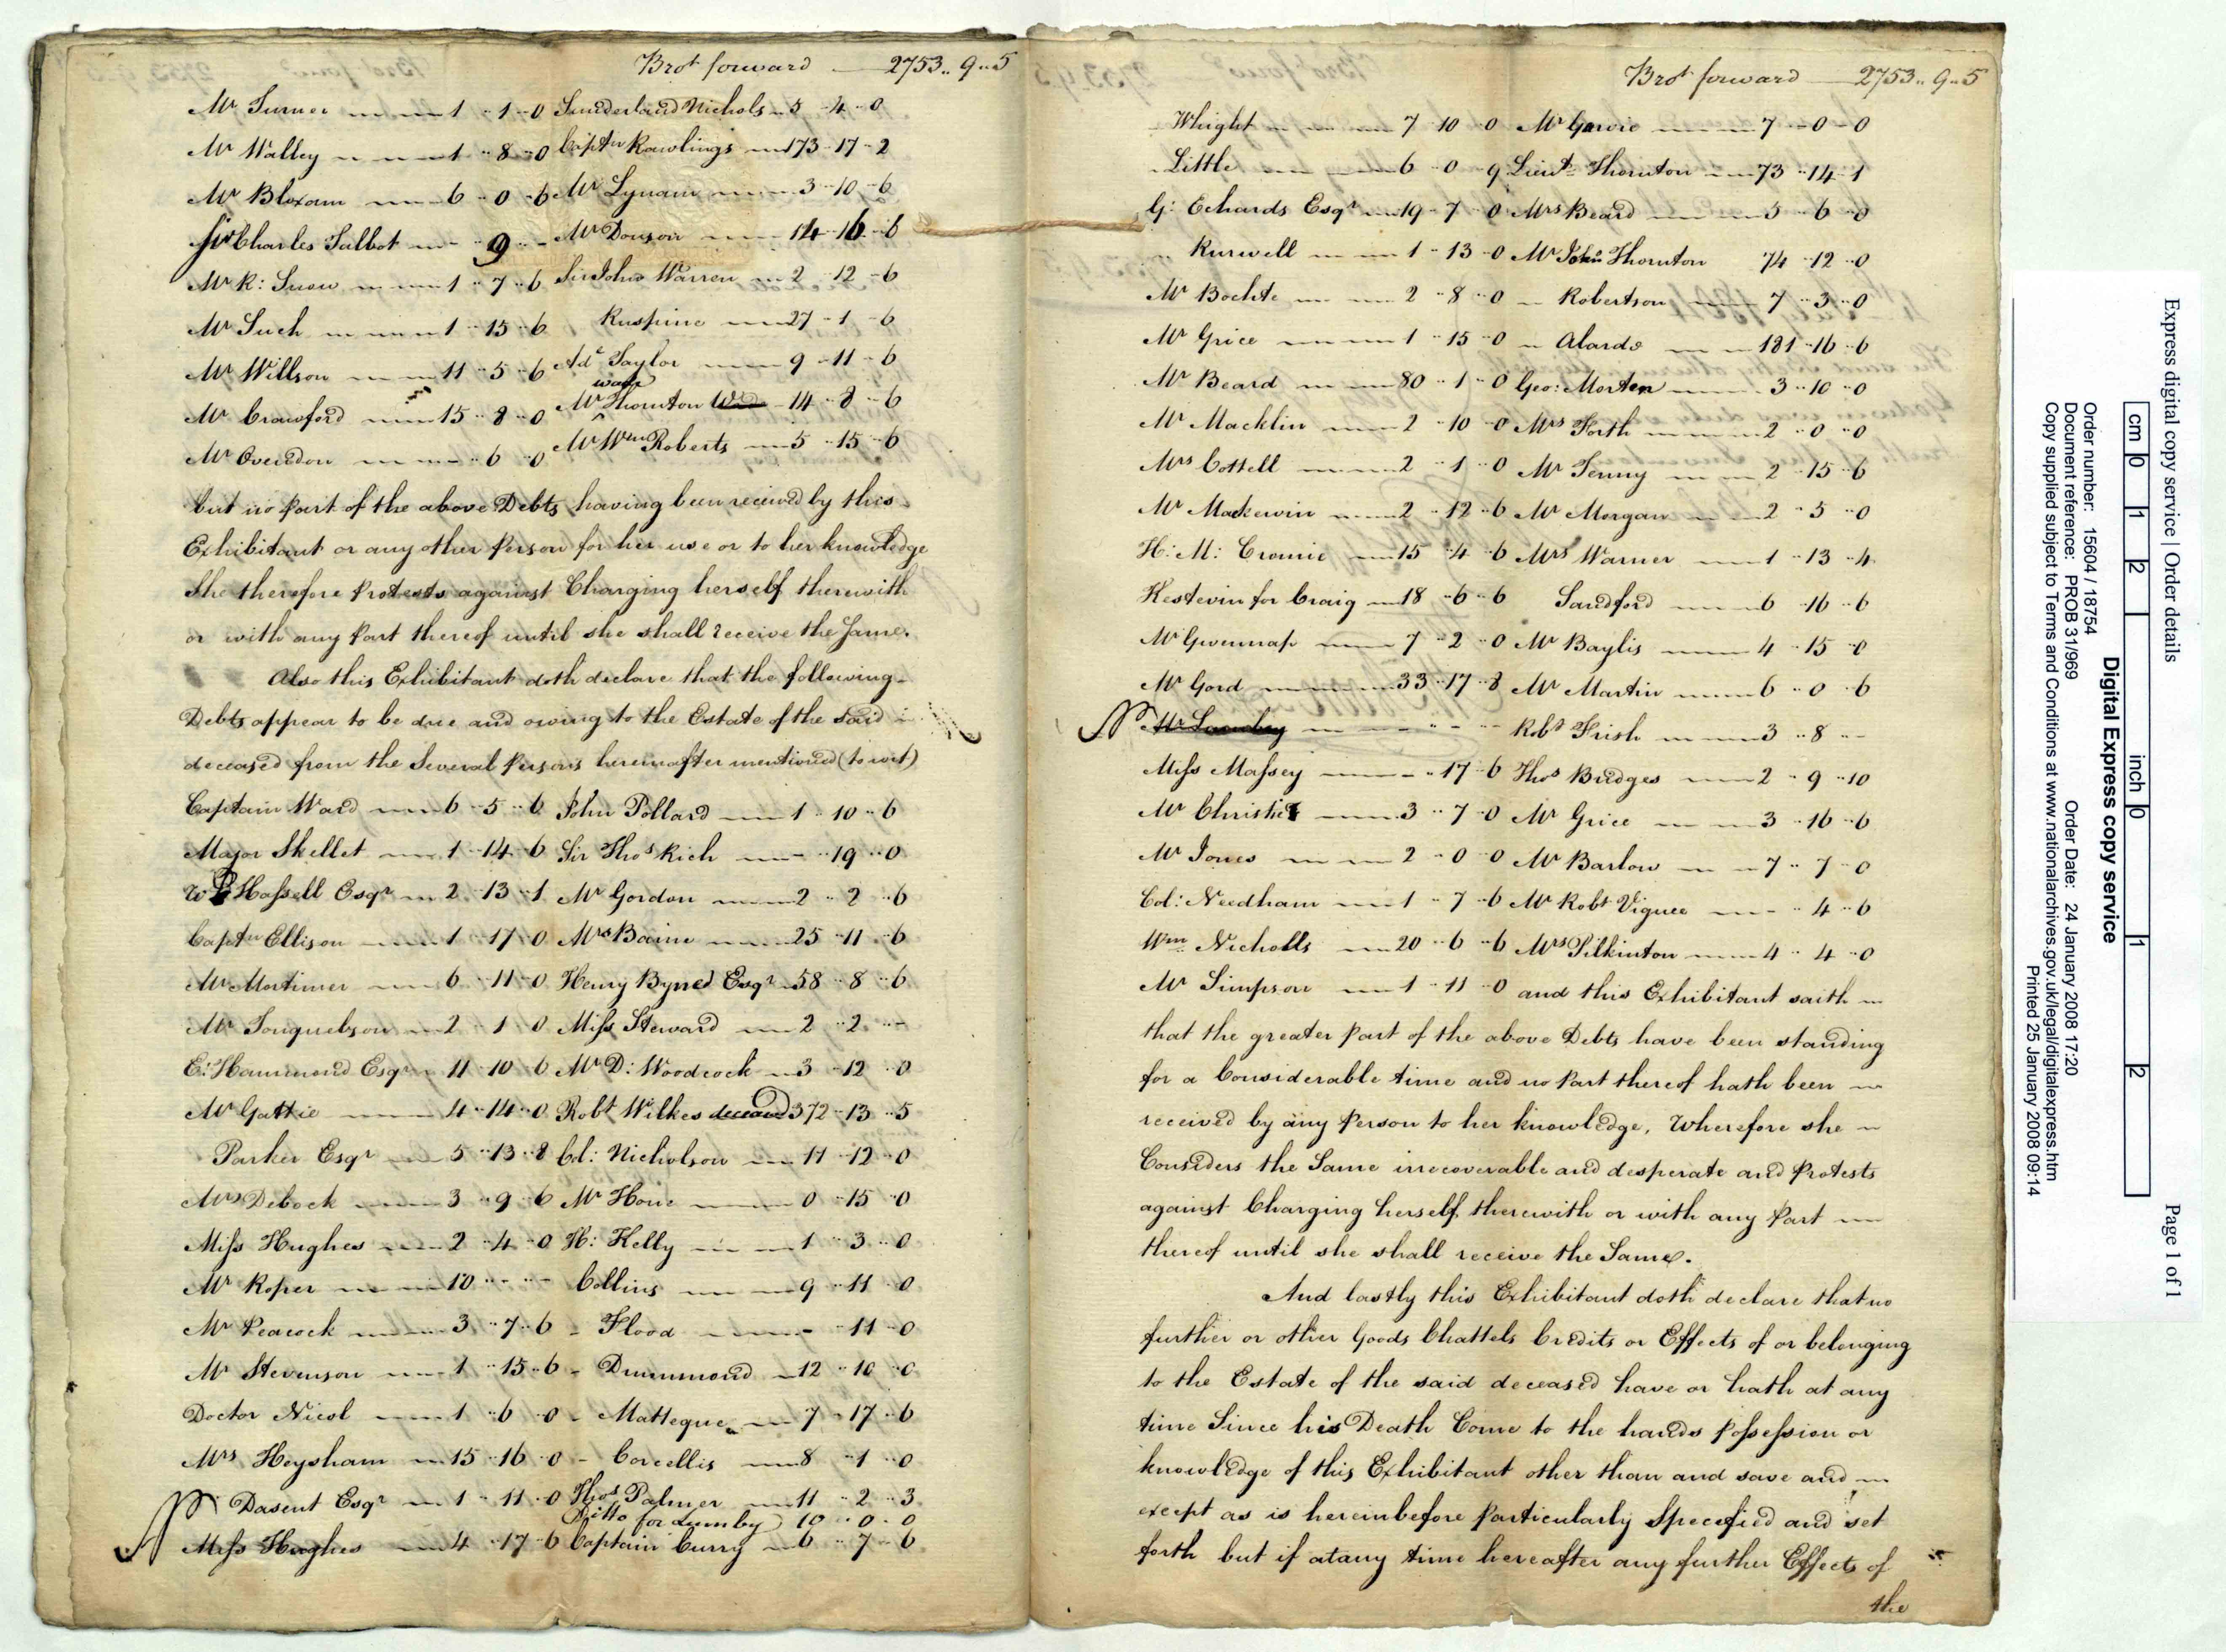 Brot forward 2753.. 9..5
Mr Turner 1 1 0 Sunderland Nichols 5 4 0
Mr Walley 1 8 0 Captn Rawlings 173 17 2
Mr Bloxam 6 0 6 Mr Lynam 3 10 6
Sir Charles Talbot 9 Mr Douson 14 16 6
Mr R: Snow 1 7 6 Sir John Warren 2 12 6
Mr Such 1 15 6 Ruspine 27 1 6
Mr Willson 11 5 6 Adl Taylor 9 11 6
Mr Crawford 15 8 0 Mr Thornton 14 8 6
Mr Overidon 6 0 Mr Wm Roberts 5 15 6
but no part of the above Debts having been received by this
Exhibitant or any other Person for her use or to her knowledge
she therefore Protests against Charging herself therewith
or with any Part thereof until she shall receive the Same.
Also this Exhibitant doth declare that the following
Debts appear to be due and owing to the Estate of the Said
deceased from the Several Persons hereinafter mentioned (to wit)
Captain Ward 6 5 6 John Pollard 1 10 6
Major Skellet 1 14 6 Sir Thos Rich 19 0
Hassell Esqr 2 13 1 Mr Gordon 2 2 6
Captn Ellison 1 17 0 Mrs Baine 25 11 6
Mr Mortimer 6 11 0 Henry Byned Esqr 58 8 6
Mr Tonquebson 2 1 0 Miss Steward 2 2
E: Hammond Esqr 11 10 6 Mr D: Woodcock 3 12 0
Mr Gattie 4 14 0 Robt Wilkes deceased 372 13 5
Parker Esqr 5 13 8 Col: Nicholson 11 12 0
Mrs Debock 3 9 6 Mr Hone 0 15 0
Miss Hughes 2 4 0 H: Kelly 1 3 0
Mr Roper 10 Collins 9 11 0
Mr Peacock 3 7 6 Flood 11 0
Mr Stevenson 1 15 6 Drummond 12 10 0
Doctor Nicol 1 6 0 Matteque 7 17 6
Mrs Heysham 15 16 0 Corcellis 8 1 0
Dasent Esqr 1 11 0 Thos Palmer 11 2 3
Ditto for Lumby 10 0 0
Miss Hughes 4 17 6 Captain Curry 6 7 6
Brot forward 2753.. 9..5
Whight 7 10 0 Mr Garvie 7 0 0
Little 6 0 9 Lieut Thornton 73 14 1
G: Echards Esqr 19 7 0 Mrs Beard 5 6 0
Kurwell 1 13 0 Mr John Thornton 74 12 0
Mr Bochte 2 8 0 Robertson 7 3 0
Mr Grice 1 15 0 Alardo 181 16 6
Mr Beard 80 1 0 Geo: Morten 3 10 0
Mr Macklin 2 10 0 Mrs Forth 2 0 0
Mrs Cottell 2 1 0 Mr Tenny 2 15 6
Mr Mackewin 2 12 6 Mr Morgan 2 5 0
H: M: Cromie 15 4 6 Mrs Warner 1 13 4
Kestevin for Craig 18 6 6 Sandford 6 16 6
Mr Gwennap 7 2 0 Mr Baylis 4 15 0
Mr Gord 33 17 8 Mr Martin 6 0 6
Robt Frish 3 8
Miss Massey 17 6 Thos Bridges 2 9 10
Mr Christie 3 7 0 Mr Grice 3 16 6
Mr Jones 2 0 0 Mr Barlow 7 7 0
Col: Needham 1 7 6 Mr Robt Vignee 4 6
Wm Nicholls 20 6 6 Mrs Pilkinton 4 4 0
Mr Simpson 1 11 0 and this Exhibitant saith
that the greater part of the above Debts have been standing
for a Considerable time and no Part thereof hath been
received by any Person to her knowledge, Wherefore she
Considers the Same irrecoverable and desperate and Protests
against Charging herself therewith or with any Part
thereof until she shall receive the Same.
And lastly this Exhibitant doth declare that no
further or other Goods Chattels Credits or Effects of or belonging
to the Estate of the said deceased have or hath at any
time Since his Death Come to the hands Possession or
knowledge of this Exhibitant other than and save and
except as is hereinbefore Particularly Specified and set
forth but if at any time hereafter any further Effects of
the
Express digital copy service | Order details
Page 1 of 1
cm 0 1 2 inch 0 1 2
Digital Express copy service
Order number: 15604 / 18754 Order Date: 24 January 2008 17:20
Document reference: PROB 31/969
Copy supplied subject to Terms and Conditions at www.nationalarchives.gov.uk/legal/digitalexpress.htm
Printed 25 January 2008 09:14